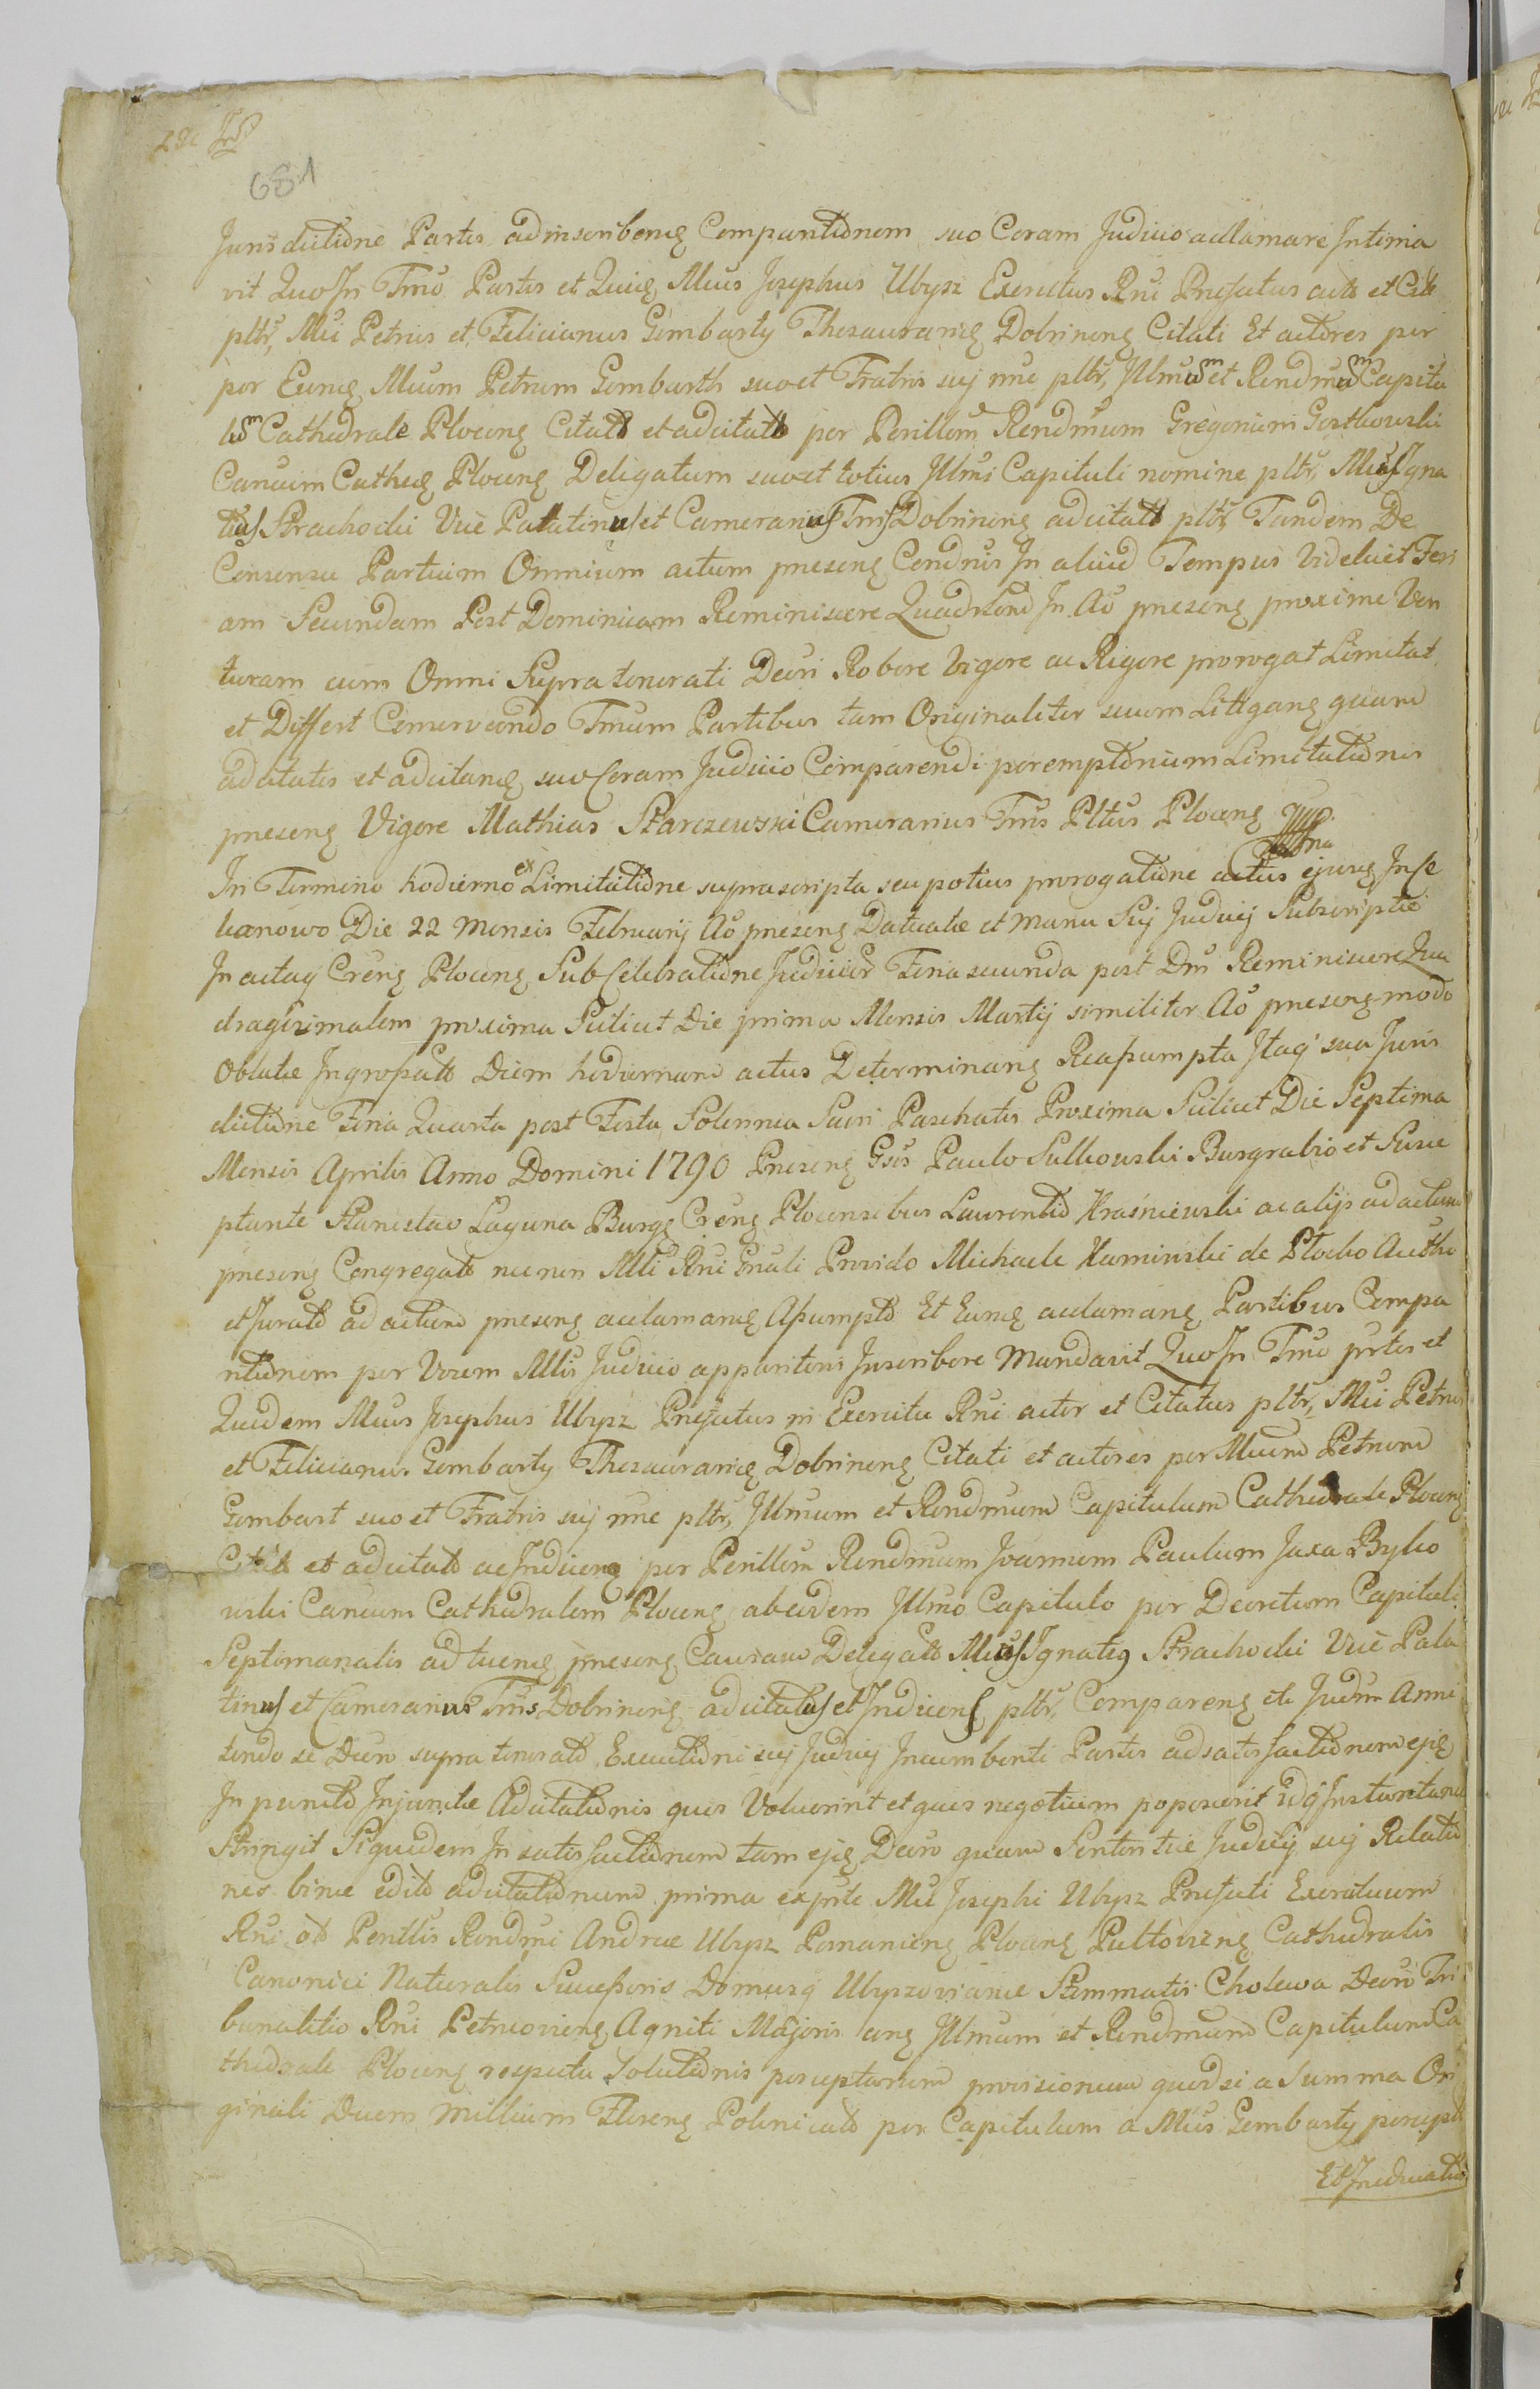 681
Jurisdictione Partes adinscribeng Comparitionem suo Coram Judicio acclamare Intima
vit Quo In Tmo Partes et Quieg Mcus Josephus Ubysz Exercitus Rni Prefectus act et Citt
pltr, Mci Petrus et Felicianus Gembarty Thesauranieg Dobrineng Citati Et actores per
per Euneg Mcum Petrum Gembarth suo et Fratris sui nne pltr, Illmum et Rendmum Capitu
lum Cathedrale Ploceng Citatt et adcitatt per Perillem Rendmum Gregorium Gostkowski
Canum Catheg Ploceng Deligatum suo et totius Illmi Capituli nomine pltr, Mcus Igna
tius Strachocki Vice Palatinus et Camerarius Tris Dobrineng adcitatt pltr, Tandem De
Consensu Partium Omnium actum preseng Condnis In aliud Tempus Videlicet Feri
am Secundam Post Dominicam Reminiscere Quadrlem In Ao preseng proxime Ven
turam cum Omni Supra tenorati Decri Robore Vigore ac Rigore prorogat Limitat
et Differt Conservando Tmum Partibus tam Originaliter secum Littgang quam
adcitatis et adcitang suo Coram Judicio Comparendi peremptorium Limitationis
preseng Vigore Mathias Starczewski Camerarius Tris Pltus Ploceng
In Termino hodierno ex Limitatione suprascripta seu potius prorogatione actus ejusg In
Die 22 Mensis Februarij Ao preseng Datuate et manu Sui Judicij Subscripte
In actag Creng Ploceng Sub Celebratione Judicior Feria secunda post Dm Reminiscere Qua
dragesimalem proxima Scilicet Die prima Mensis Martij similiter Ao preseng modo
Oblate Ingrossatt Diem hodiernam actus Determinang Reassumpta Itag sua Juris
dictione Feria Quarta post Festa Solennia Sacri Paschatis Proxima Scilicet Die Septima
Mensis Aprilis Anno Domini 1790 Preseng Gsis Paulo Sulkowski Burgrabio et Susce
ptante Stanislao Laguna Burg Creng Plocensibus Laurentio Kraśniewski ac alijs ad actum
preseng Congregatt necnon Mtti Rni Gnali Provido Michaele Kaminski de Plocko Autho
et Jurato ad actum preseng acclamaneg Assumpto Et Euneg acclamang Partibus Compa
ritionem per Vocem Mtris Judicio apparitoris Inscribere Mandavit Quo In Tmo prtes et
Quidem Mcus Josephus Ubysz Prefectus in Exercitu Rni actor et Citatus pltr, Mci Petrus
et Felicianus Gembarty Thesauranieg Dobrineng Citati et actores per Mcum Petrum
Gembart suo et Fratris sui nne pltr, Illmum et Rendmum Capitulum Cathedrale Ploceng
Citatt et adcitatt ac Indiceng per Perillem Rendmum Joannem Paulum Jaxa Byko
wski Canum Cathedralem Ploceng ab eodem Illmo Capitulo per Decretum Capituli
Septimanalis ad tueneg preseng Causam Delegatt Mcus Ignatig Strachocki Vice Pala
tinus et Camerarius Tris Dobrineng adcitatus et Indicens pltr, Compareng ite Judm Anni
tendo se Decro supra tenorato Executioni sui Judicij Incumbenti Partes ad satisfactionem ejus
In puncto Injuncte Adcitationis quis Voluerint et quis negotium poposcerit
Stringit Siquidem In satisfactionem tam ejus Decro quam Sententie Judicij sui Relatio
nes bine edite adcitationum prima ex prte Mci Josephi Ubysz Prefecti Exercituum
Rni ob Perillis Rendmi Andree Ubysz Posnanieng Ploceng Pultovieng Cathedralis
Canonici Naturalis Successoris Domusg Ubyszoviane Stemmatis Cholewa Decro Tri
bunalitio Rni Petricovieng Agniti Majoris ang Illmum et Rendmum Capitulum Ca
thedrale Ploceng respectu Solutionis perceptarum provisionum quodsi a Summa Ori
ginali Duem Millium Floreng Polonicatt per Capitulum a Mcis Gembarty percept